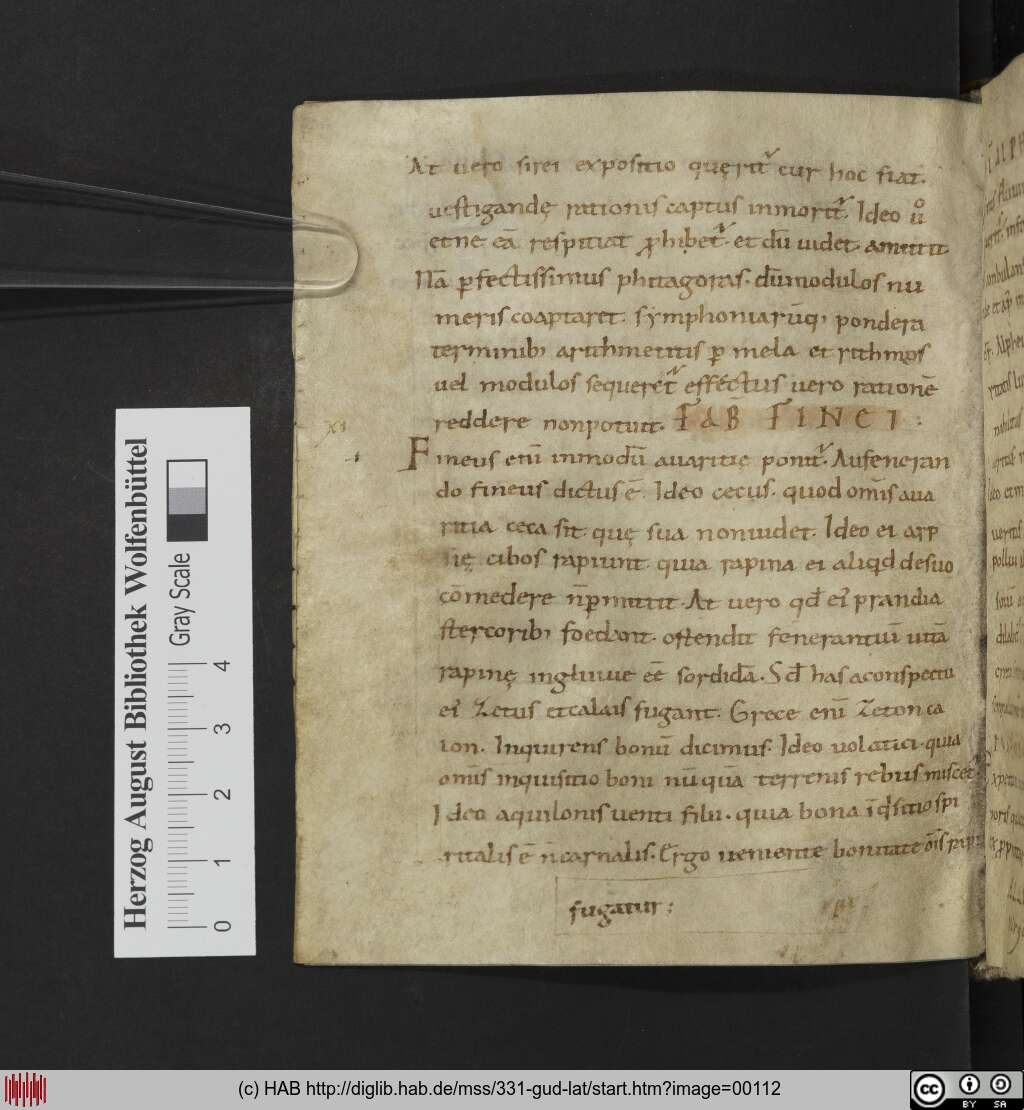 At uero si rei expositio quęrit᷑ cur hoc fiat.
uestigandę rationis captus inmorit᷑. Ideo ů
et ne eā respitiat ꝓhibet᷑. et dū uidet amittit
Nā ꝑfectissimus phitagoras. dū modulos nu
meris coaptaret. symphoniarūq; pondera
terminib; arithmeticis ꝑ mela et rithmos
uel modulos sequeret᷑ efféctus uero rationē
reddere non potuit. FAB FINEI:
XI
Fineus eni in modū auaritię ponit᷑. A feneran
do fineus dictus ē. Ideo cecus. quod om̄is aua
ritia ceca sit. quę sua non uidet. Ideo ei arp
iię cibos rapiunt. quia rapina ei aliqd de suo
cōmedere n̄ ꝑmittit. At uero qđ ei᷒ prandia
stercorib; foedant. ostendit fenerantiū uitā
rapinę ingluuie eē sordidā. Sđ has a conspectu
ei᷒ Zetus et calais fugant. Grece eni Zeton ca
lon. Inquirens bonū dicimus. Ideo uolatici. quia
om̄is inquisitio boni nūquā terrenis rebus miscet᷑
Ideo aquilonis uenti filii. quia bona īq̇sitio spi
ritalis ē n̄ carnalis. Ergo ueniente bonitate ōis
fugatur;
Herzog August Bibliothek Wolfenbüttel
Gray Scale
0 1 2 3 4
(c) HAB http://diglib.hab.de/mss/331-gud-lat/start.htm?image=00112
cc BY SA